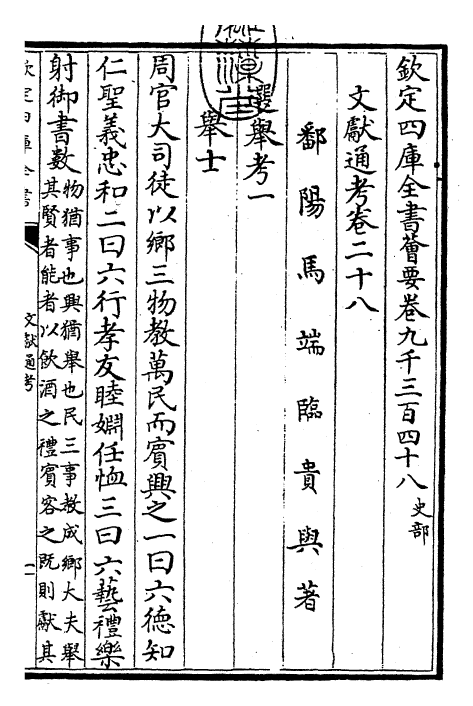 欽定四庫全書薈要卷九千三百四十八 史部
文獻通考卷二十八
鄱陽馬端臨貴與著
選舉考一
舉士
周官大司徒以鄉三物教萬民而賓興之一曰六德知
仁聖義忠和二曰六行孝友睦婣任恤三曰六藝禮樂
射御書數
物猶事也興猶舉也民三事教成鄉大夫舉
其賢者能者以飲酒之禮賓客之既則獻其
欽定四庫全書
文獻通考
一